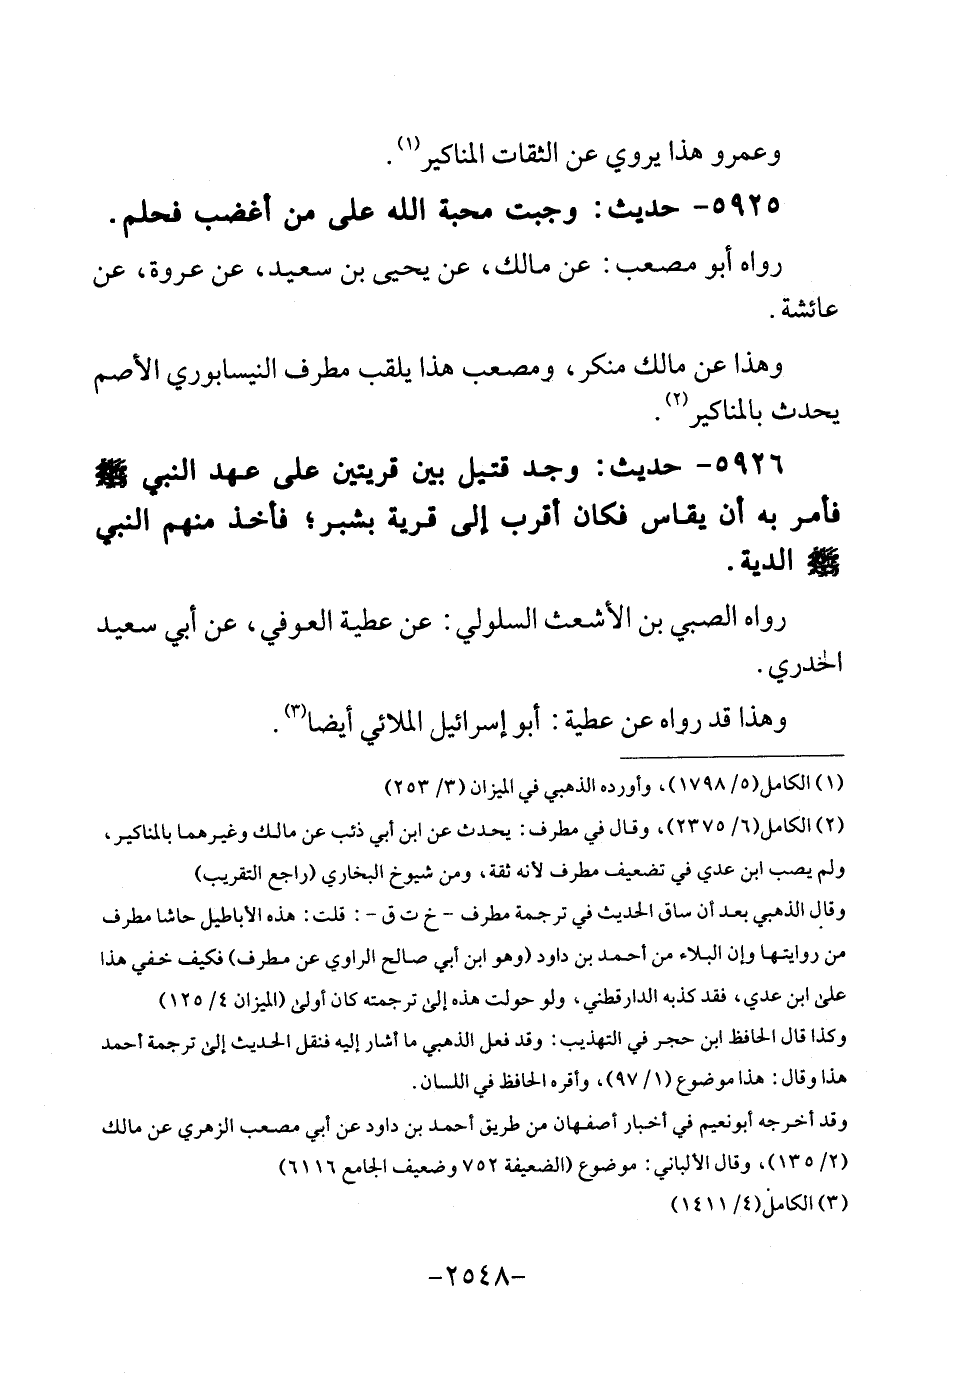 وعمرو هذا يروي عن الثقات المناكير(١).
٥٩٢٥- حديث: وجبت محبة الله على من أغضب فحلم.
رواه أبو مصعب: عن مالك، عن يحيى بن سعيد، عن عروة، عن
عائشة.
وهذا عن مالك منكر، ومصعب هذا يلقب مطرف النيسابوري الأصم
يحدث بالمناكير(٢).
٥٩٢٦- حديث: وجد قتيل بين قريتين على عهد النبي ﷺ
فأمر به أن يقاس فكان أقرب إلى قرية بشبر؛ فأخذ منهم النبي
ﷺ الدية.
رواه الصبي بن الأشعث السلولي: عن عطية العوفي، عن أبي سعيد
الخدري.
وهذا قد رواه عن عطية: أبو إسرائيل الملائي أيضا(٣).
(١) الكامل(٥/ ١٧٩٨)، وأورده الذهبي في الميزان (٣/ ٢٥٣)
(٢) الكامل(٦/ ٢٣٧٥)، وقال في مطرف: يحدث عن ابن أبي ذئب عن مالك وغيرهما بالمناكير،
ولم يصب ابن عدي في تضعيف مطرف لأنه ثقة، ومن شيوخ البخاري (راجع التقريب)
وقال الذهبي بعد أن ساق الحديث في ترجمة مطرف - خ ت ق -: قلت: هذه الأباطيل حاشا مطرف
من روايتها وإن البلاء من أحمد بن داود (وهو ابن أبي صالح الراوي عن مطرف) فكيف خفي هذا
على ابن عدي، فقد كذبه الدارقطني، ولو حولت هذه إلى ترجمته كان أولى (الميزان ٤/ ١٢٥)
وكذا قال الحافظ ابن حجر في التهذيب: وقد فعل الذهبي ما أشار إليه فنقل الحديث إلى ترجمة أحمد
هذا وقال: هذا موضوع (١/ ٩٧)، وأقره الحافظ في اللسان.
وقد أخرجه أبونعيم في أخبار أصفهان من طريق أحمد بن داود عن أبي مصعب الزهري عن مالك
(٢/ ١٣٥)، وقال الألباني: موضوع (الضعيفة ٧٥٢ وضعيف الجامع ٦١١٦)
(٣) الكامل(٤/ ١٤١١)
-٢٥٤٨-